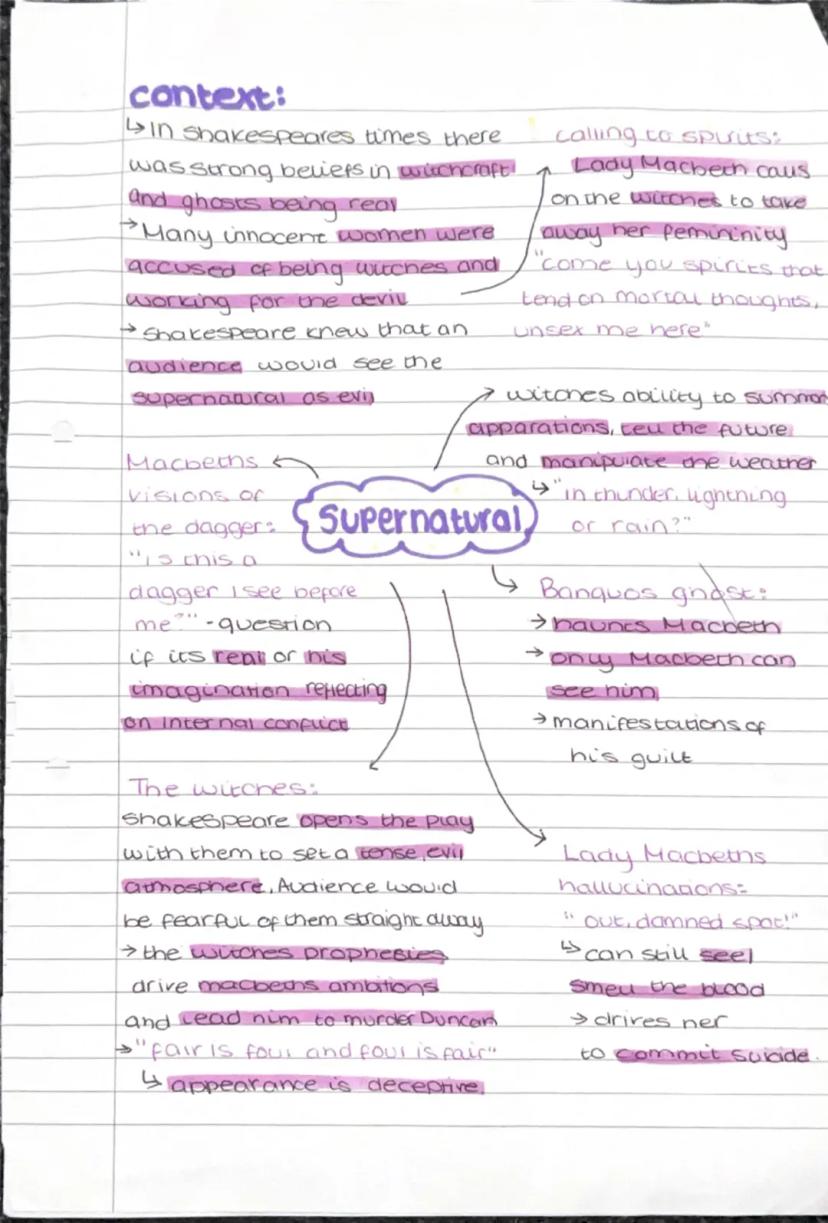 context:
↳ In shakespeares times there
was strong beliefs in witchcraft
and ghosts being real
→ Many innocent women were
accused of being witches and
working for the devil
→ shakespeare knew that an
audience would see the
supernatural as evil
calling to spirits:
Lady Macbeth calls
on the witches to take
away her femininity
"come you spirits that
tend on mortal thoughts,
unsex me here"
→ witches ability to summon
apparations, tell the future
and manipulate the weather
↳ "in thunder, lightning
or rain?"
Supernatural
Macbeths
visions of
the dagger:
"is this a
dagger I see before
me?" - question
if its real or his
imagination reflecting
on internal conflict
Banquos ghost:
→ haunts Macbeth
→ only Macbeth can
see him
→ manifestations of
his guilt
The witches:
shakespeare opens the play
with them to set a tense, evil
atmosphere. Audience would
be fearful of them straight away
→ the witches prophesies
drive macbeths ambitions
and lead him to murder Duncan
→ "fair is foul and foul is fair"
↳ appearance is deceptive
Lady Macbeths
hallucinations:
"out, damned spot!"
↳ can still see/
smell the blood
→ drives her
to commit suicide.